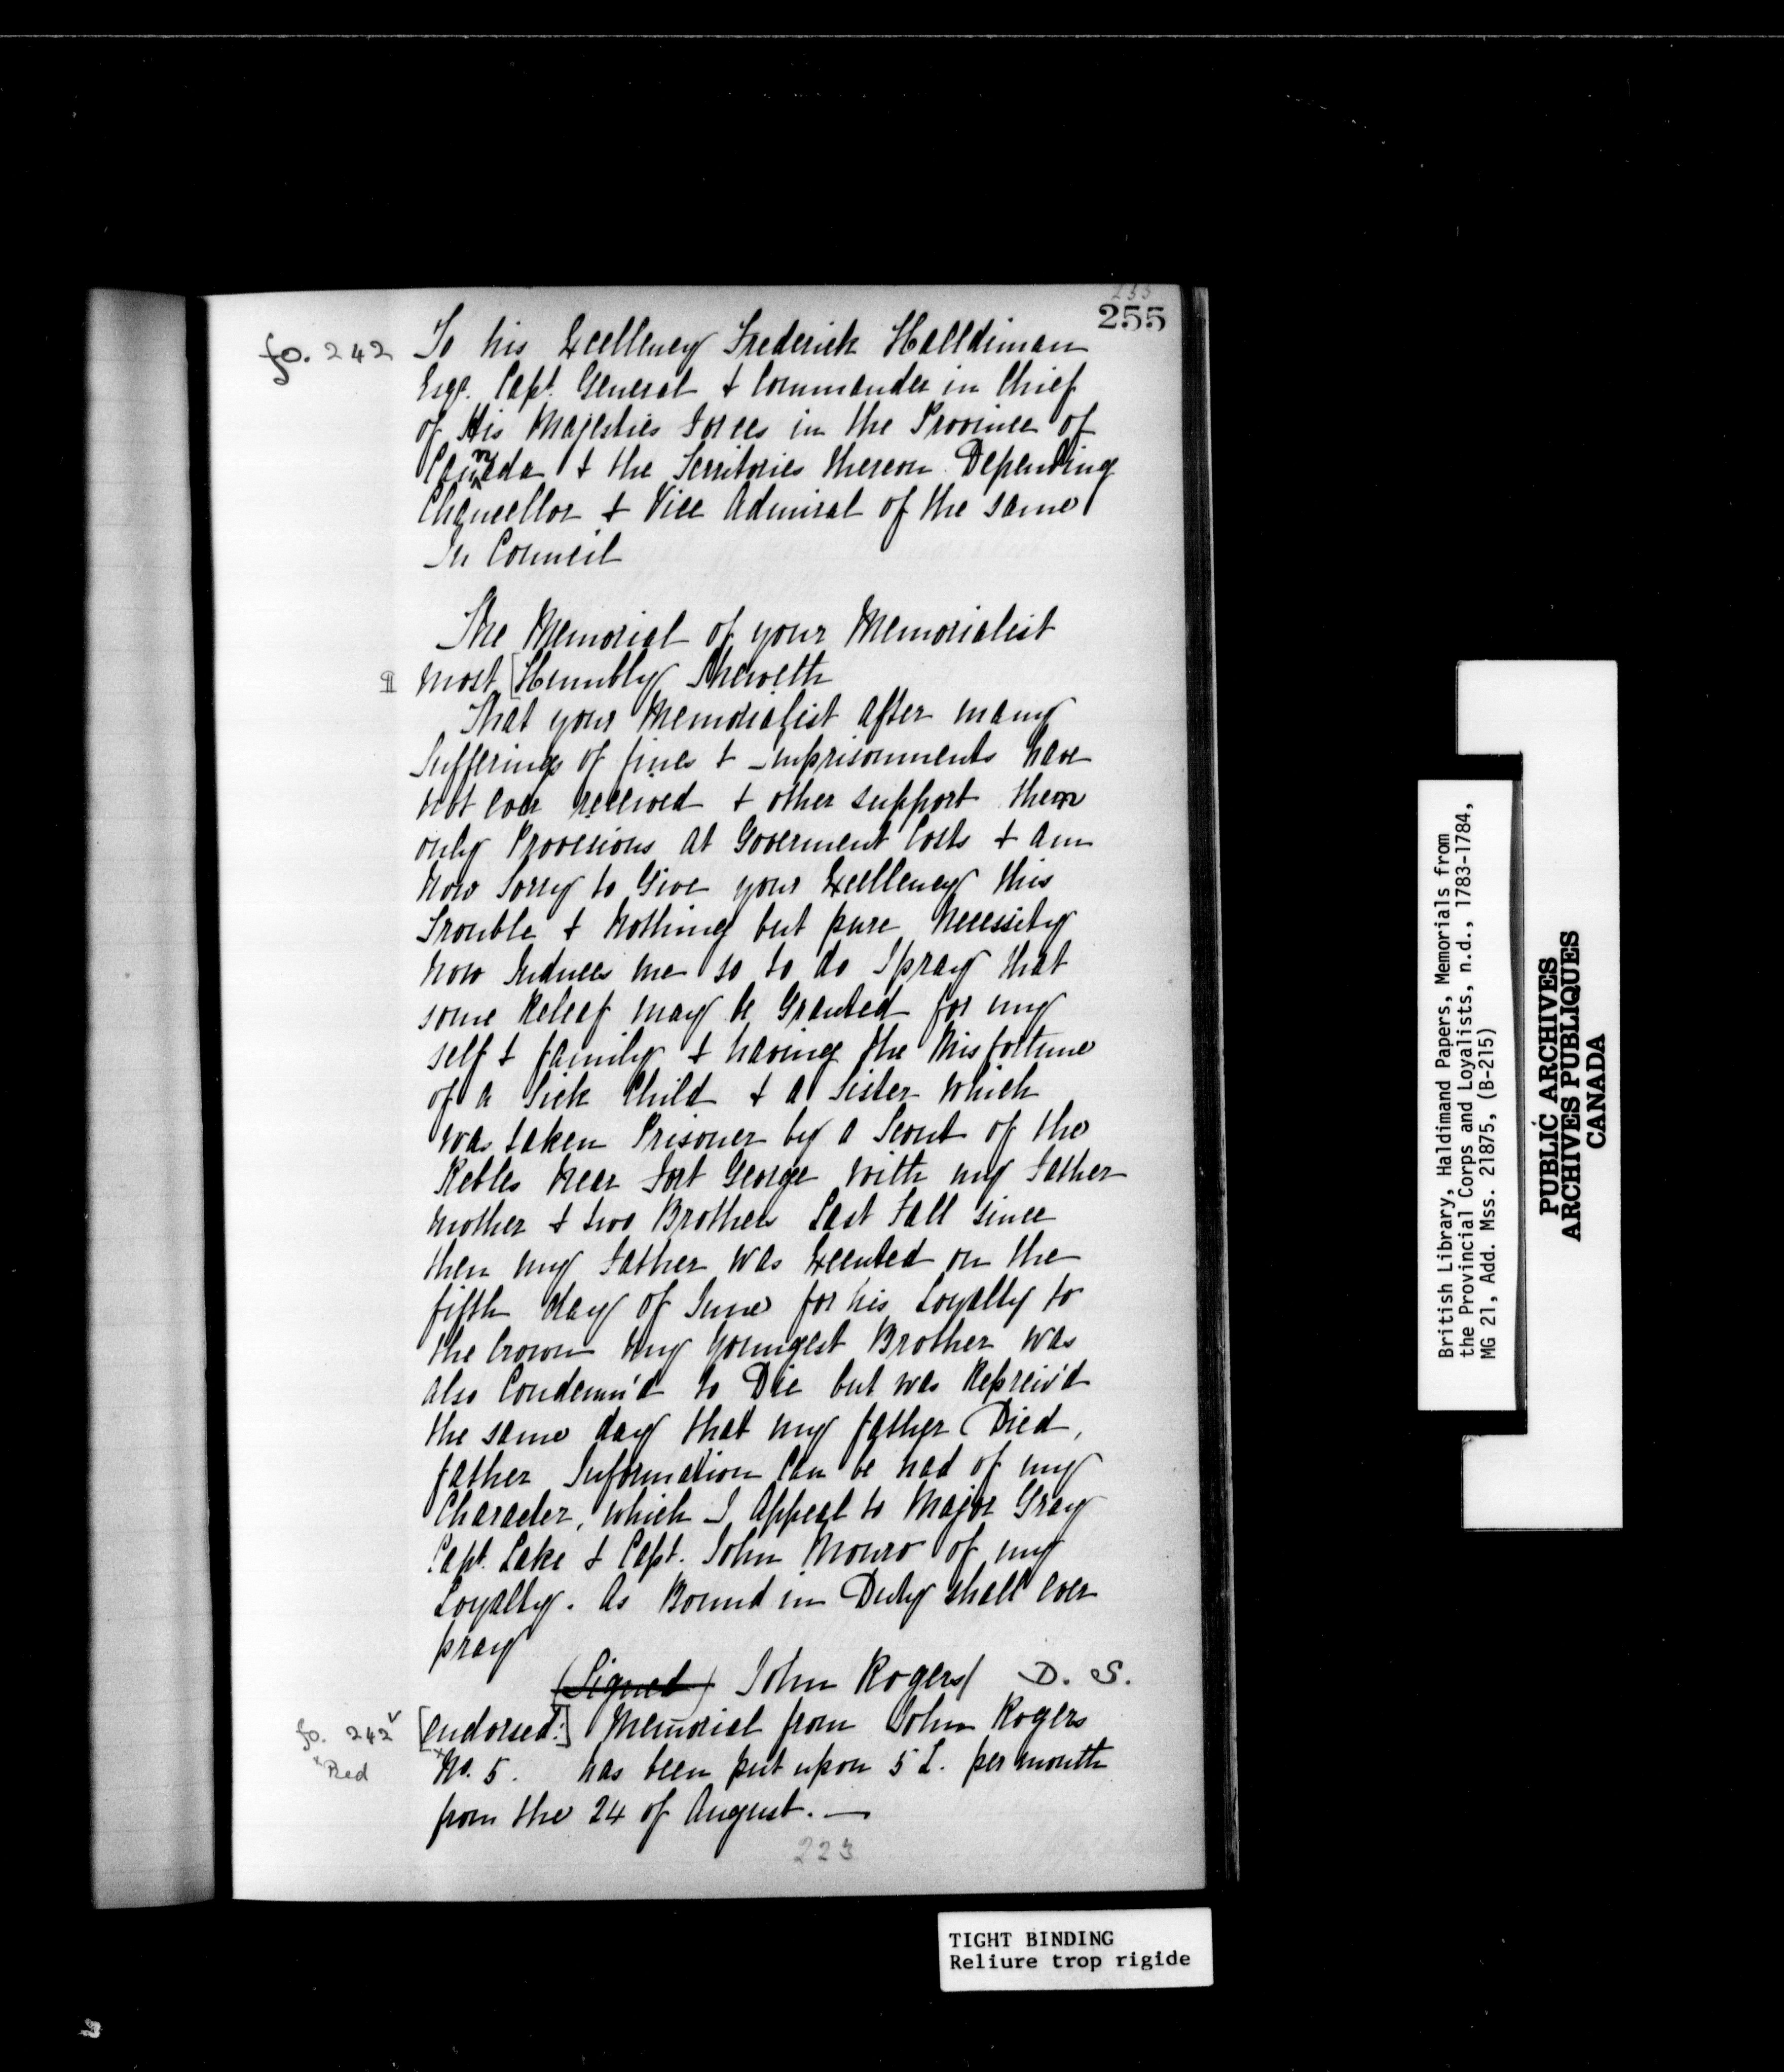 255
255
fo. 242 To his Excellency Frederick Halldiman
Esqr. Capt. General & Commander in Chief
of His Majesties Forces in the Province of
Canada & the Territories thereon Depending
Chancellor & Vice Admiral of the same
In Council
The Memorial of your Memorialist
¶ most [Humbly Sheweth
That your Memorialist after many
Sufferings of fines & Imprisonments have
not ever received & other support then
only Provisions at Goverment Costs & am
now Sorry to Give your Excellency this
Trouble & Nothing but pure Necessity
now Induces me so to do I pray that
some Releaf may be Granted for my
self & family & having the Misfortune
of a Sick Child & a Sister which
was taken Prisoner by a Scout of the
Rebles near Fort George with my Father
mother & two Brothers Last Fall since
then my Father was Executed on the
fifth day of June for his Loyalty to
the Crown my youngest Brother was
also Condemn'd to Die but was Repreiv'd
the same day that my father Died,
father Information Can be had of my
Character, which I Appeal to Major Gray
Capt. Lake & Capt. John Monro of my
Loyalty. As Bound in Duty shall ever
pray
(Signed) John Rogers D. S.
fo. 242v [endorsed:] Memorial from John Rogers
x Red x No. 5. has been put upon 5 L. per month
from the 24 of August. —
223
TIGHT BINDING
Reliure trop rigide
British Library, Haldimand Papers, Memorials from
the Provincial Corps and Loyalists, n.d., 1783-1784,
MG 21, Add. Mss. 21875, (B-215)
PUBLIC ARCHIVES
ARCHIVES PUBLIQUES
CANADA